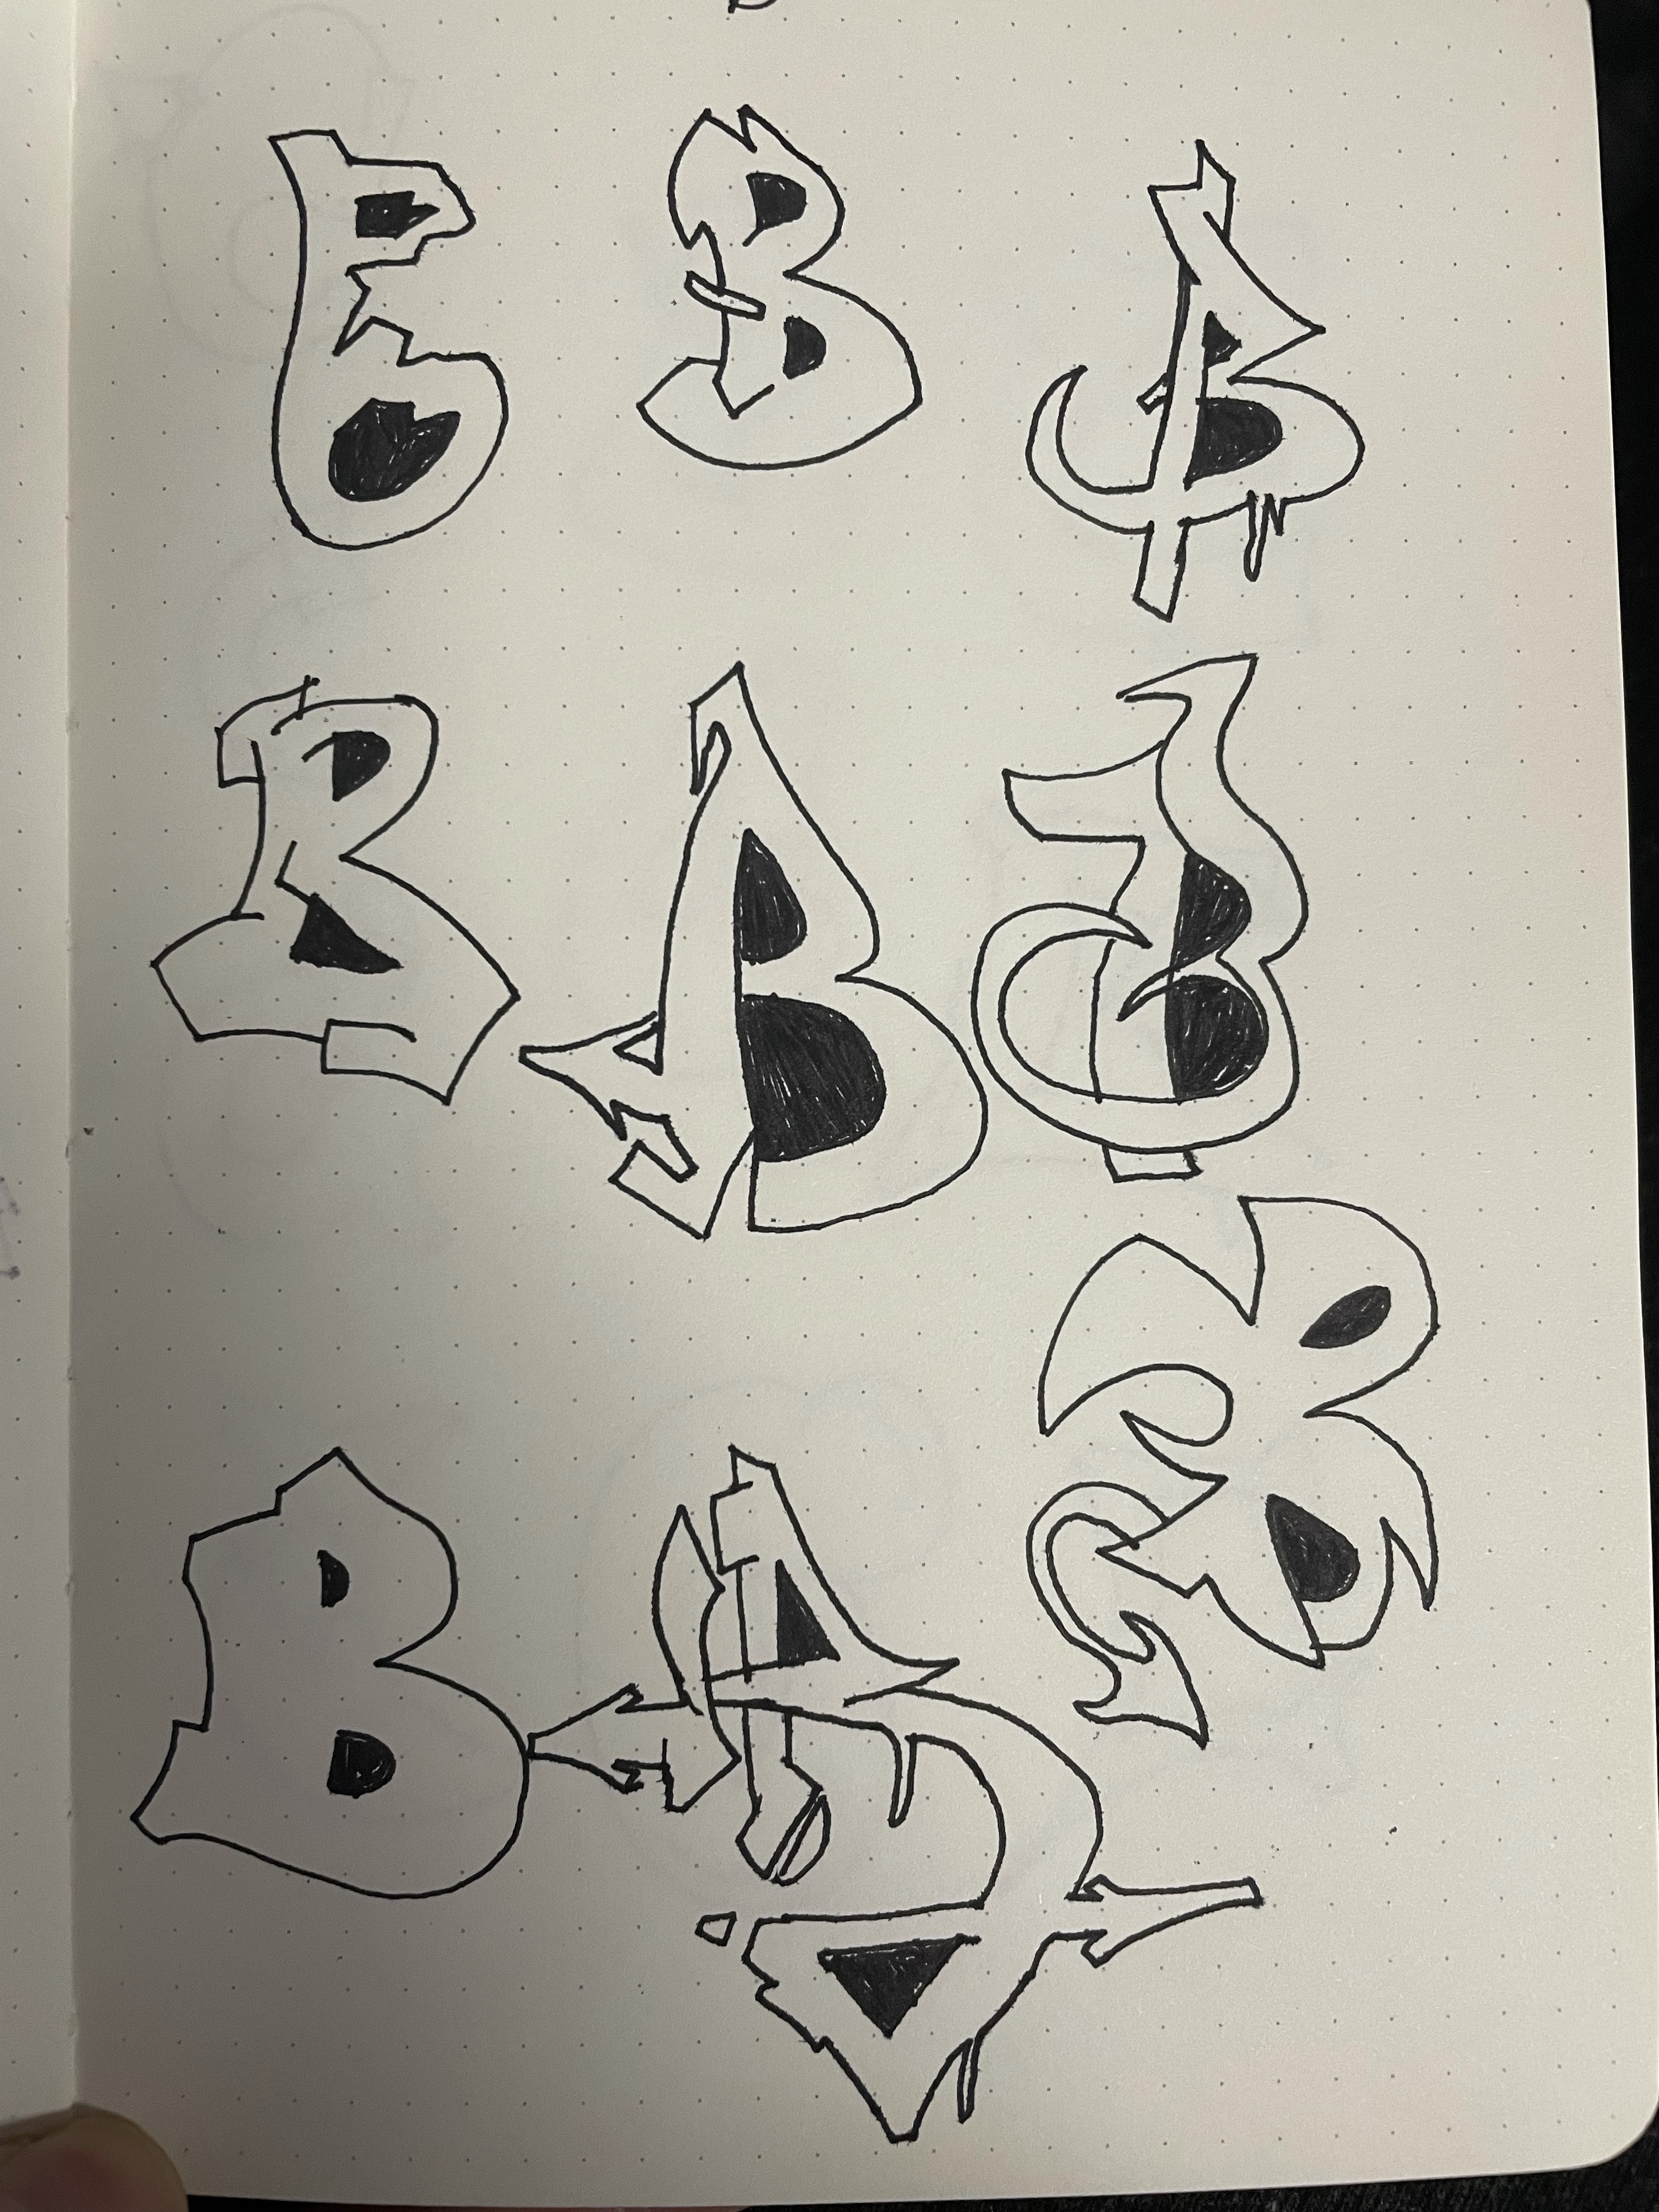 B B B
B B B
B B B